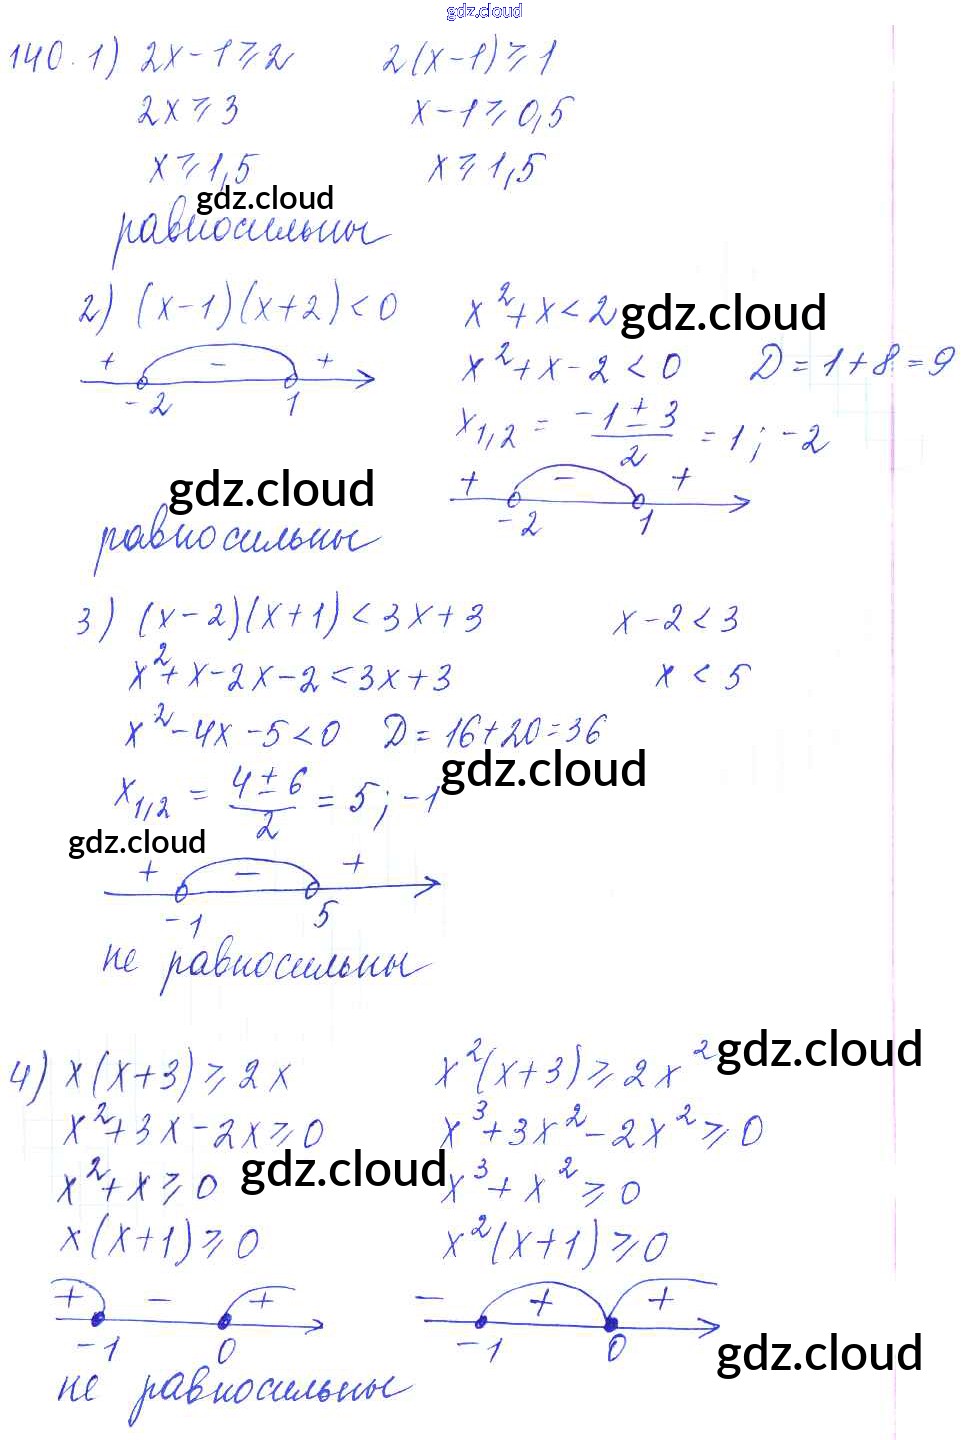 gdz.cloud
140. 1) 2x-1≥2 2(x-1)≥1
2x≥3 x-1≥0,5
x≥1,5 x≥1,5
gdz.cloud
равносильны
2) (x-1)(x+2)<0 x²+x<2 gdz.cloud
+ - + x²+x-2<0 D=1+8=9
-2 1 x₁,₂ = (-1±3)/2 = 1; -2
gdz.cloud + - +
-2 1
равносильны
3) (x-2)(x+1)<3x+3 x-2<3
x²+x-2x-2<3x+3 x<5
x²-4x-5<0 D=16+20=36
x₁,₂ = (4±6)/2 = 5; -1 gdz.cloud
gdz.cloud
+ - +
-1 5
не равносильны
4) x(x+3)≥2x x²(x+3)≥2x² gdz.cloud
x²+3x-2x≥0 x³+3x²-2x²≥0
x²+x≥0 gdz.cloud x³+x²≥0
x(x+1)≥0 x²(x+1)≥0
+ - + - + +
-1 0 -1 0 gdz.cloud
не равносильны